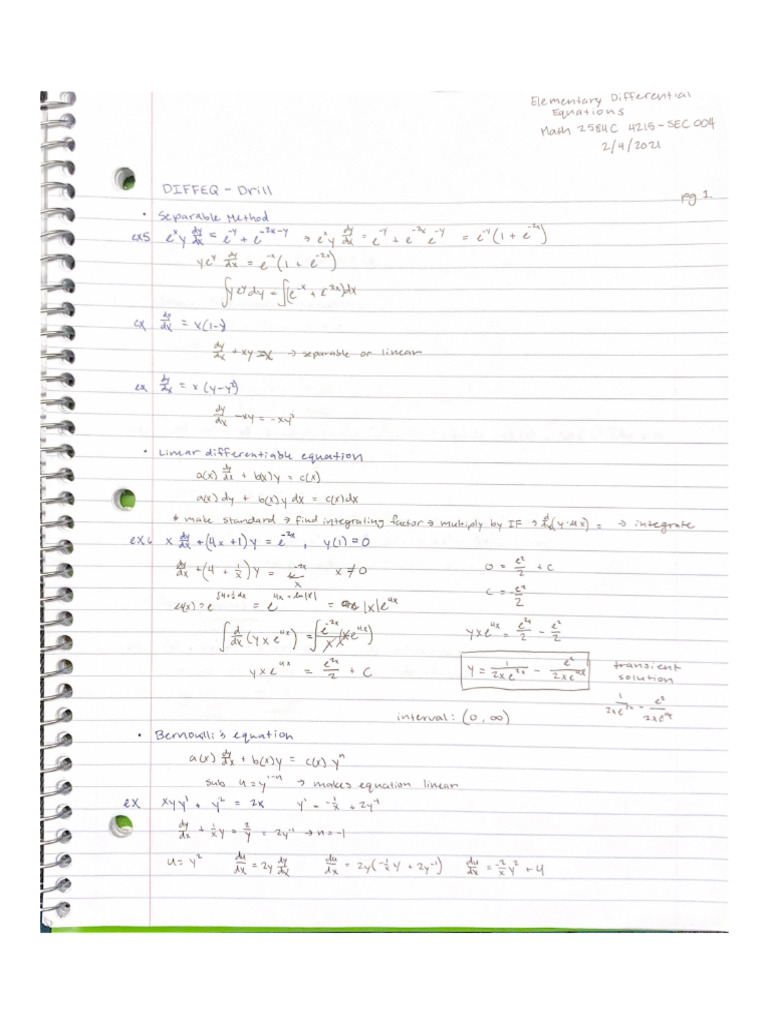 Elementary Differential
Equations
Math 2584C 4215-SEC 004
2/4/2021
DIFFEQ - Drill
pg 1.
• Separable Method
ex5 e^x y dy/dx = e^-y + e^-2x-y → e^x y dy/dx = e^-y + e^-2x e^-y = e^-y (1 + e^-2x)
ye^y dy/dx = e^-x (1 + e^-2x)
∫ye^y dy = ∫(e^-x + e^-3x)dx
ex dy/dx = x(1-y)
dy/dx + xy = x → separable or linear
ex dy/dx = x(y-y^2)
dy/dx - xy = -xy^2
• Linear differentiable equation
a(x) dy/dx + b(x)y = c(x)
a(x) dy + b(x) y dx = c(x)dx
* make standard → find integrating factor → multiply by IF → d/dx (y·μx) = → integrate
ex6 x dy/dx + (4x+1)y = e^-2x, y(1)=0
dy/dx + (4 + 1/x)y = e^-2x/x x ≠ 0
0 = e^2/2 + C
μ(x) = e^∫4+1/x dx = e^4x+ln|x| = |x|e^4x
C = -e^2/2
∫d/dx (yxe^4x) = ∫e^-2x/x (xe^4x)
yxe^4x = e^2x/2 - e^2/2
yxe^4x = e^2x/2 + C
y = 1/2xe^2x - e^2/2xe^4x
transient
solution
1/2xe^2x - e^2/2xe^4x
interval: (0, ∞)
• Bernoulli's equation
a(x) dy/dx + b(x)y = c(x) y^n
sub u = y^1-n → makes equation linear
ex xyy' + y^2 = 2x y' = -1/x + 2y^-1
dy/dx + 1/x y = 2/y = 2y^-1 → n=-1
u = y^2 du/dx = 2y dy/dx du/dx = 2y(-1/x y + 2y^-1) du/dx = -2/x y^2 + 4